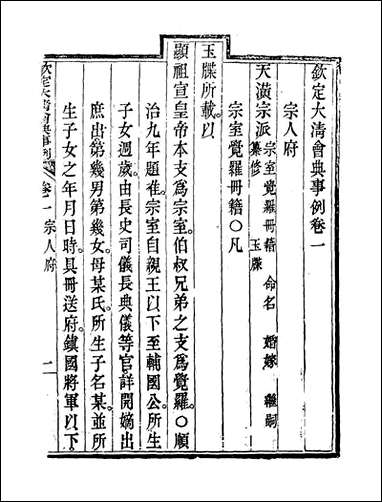 欽定大清會典事例卷一
宗人府
天潢宗派 宗室覺羅冊籍 命名 婚嫁 繼嗣
纂修 玉牒
宗室覺羅冊籍○凡
玉牒所載。以
顯祖宣皇帝本支爲宗室。伯叔兄弟之支爲覺羅。○順
治九年題准。宗室自親王以下至輔國公。所生
子女週歲。由長史司儀長典儀等官。詳開嫡出
庶出。第幾男第幾女。母某氏。所生子名某。並所
生子女之年月日時。具冊送府。鎭國將軍以下。
欽定大清會典事例 卷一 宗人府 一